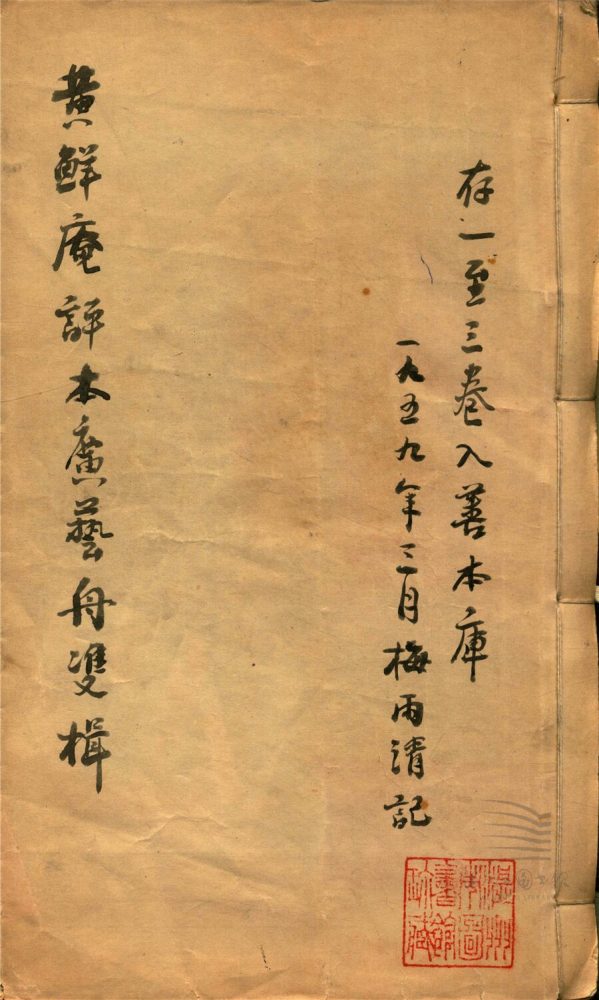 存一至三卷入善本庫
一九五九年三月梅雨清記
黄鮮庵評本廣藝舟雙楫
溫州
市圖
書館
珍藏